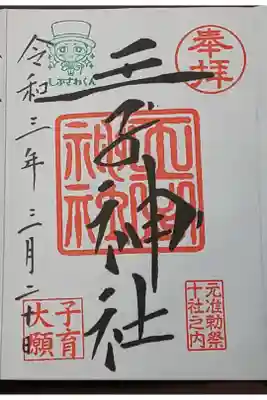 奉拝
元准勅祭
十社之内
王子神社
王子神社
しぶさわくん
令和三年三月二十日
子育
大願